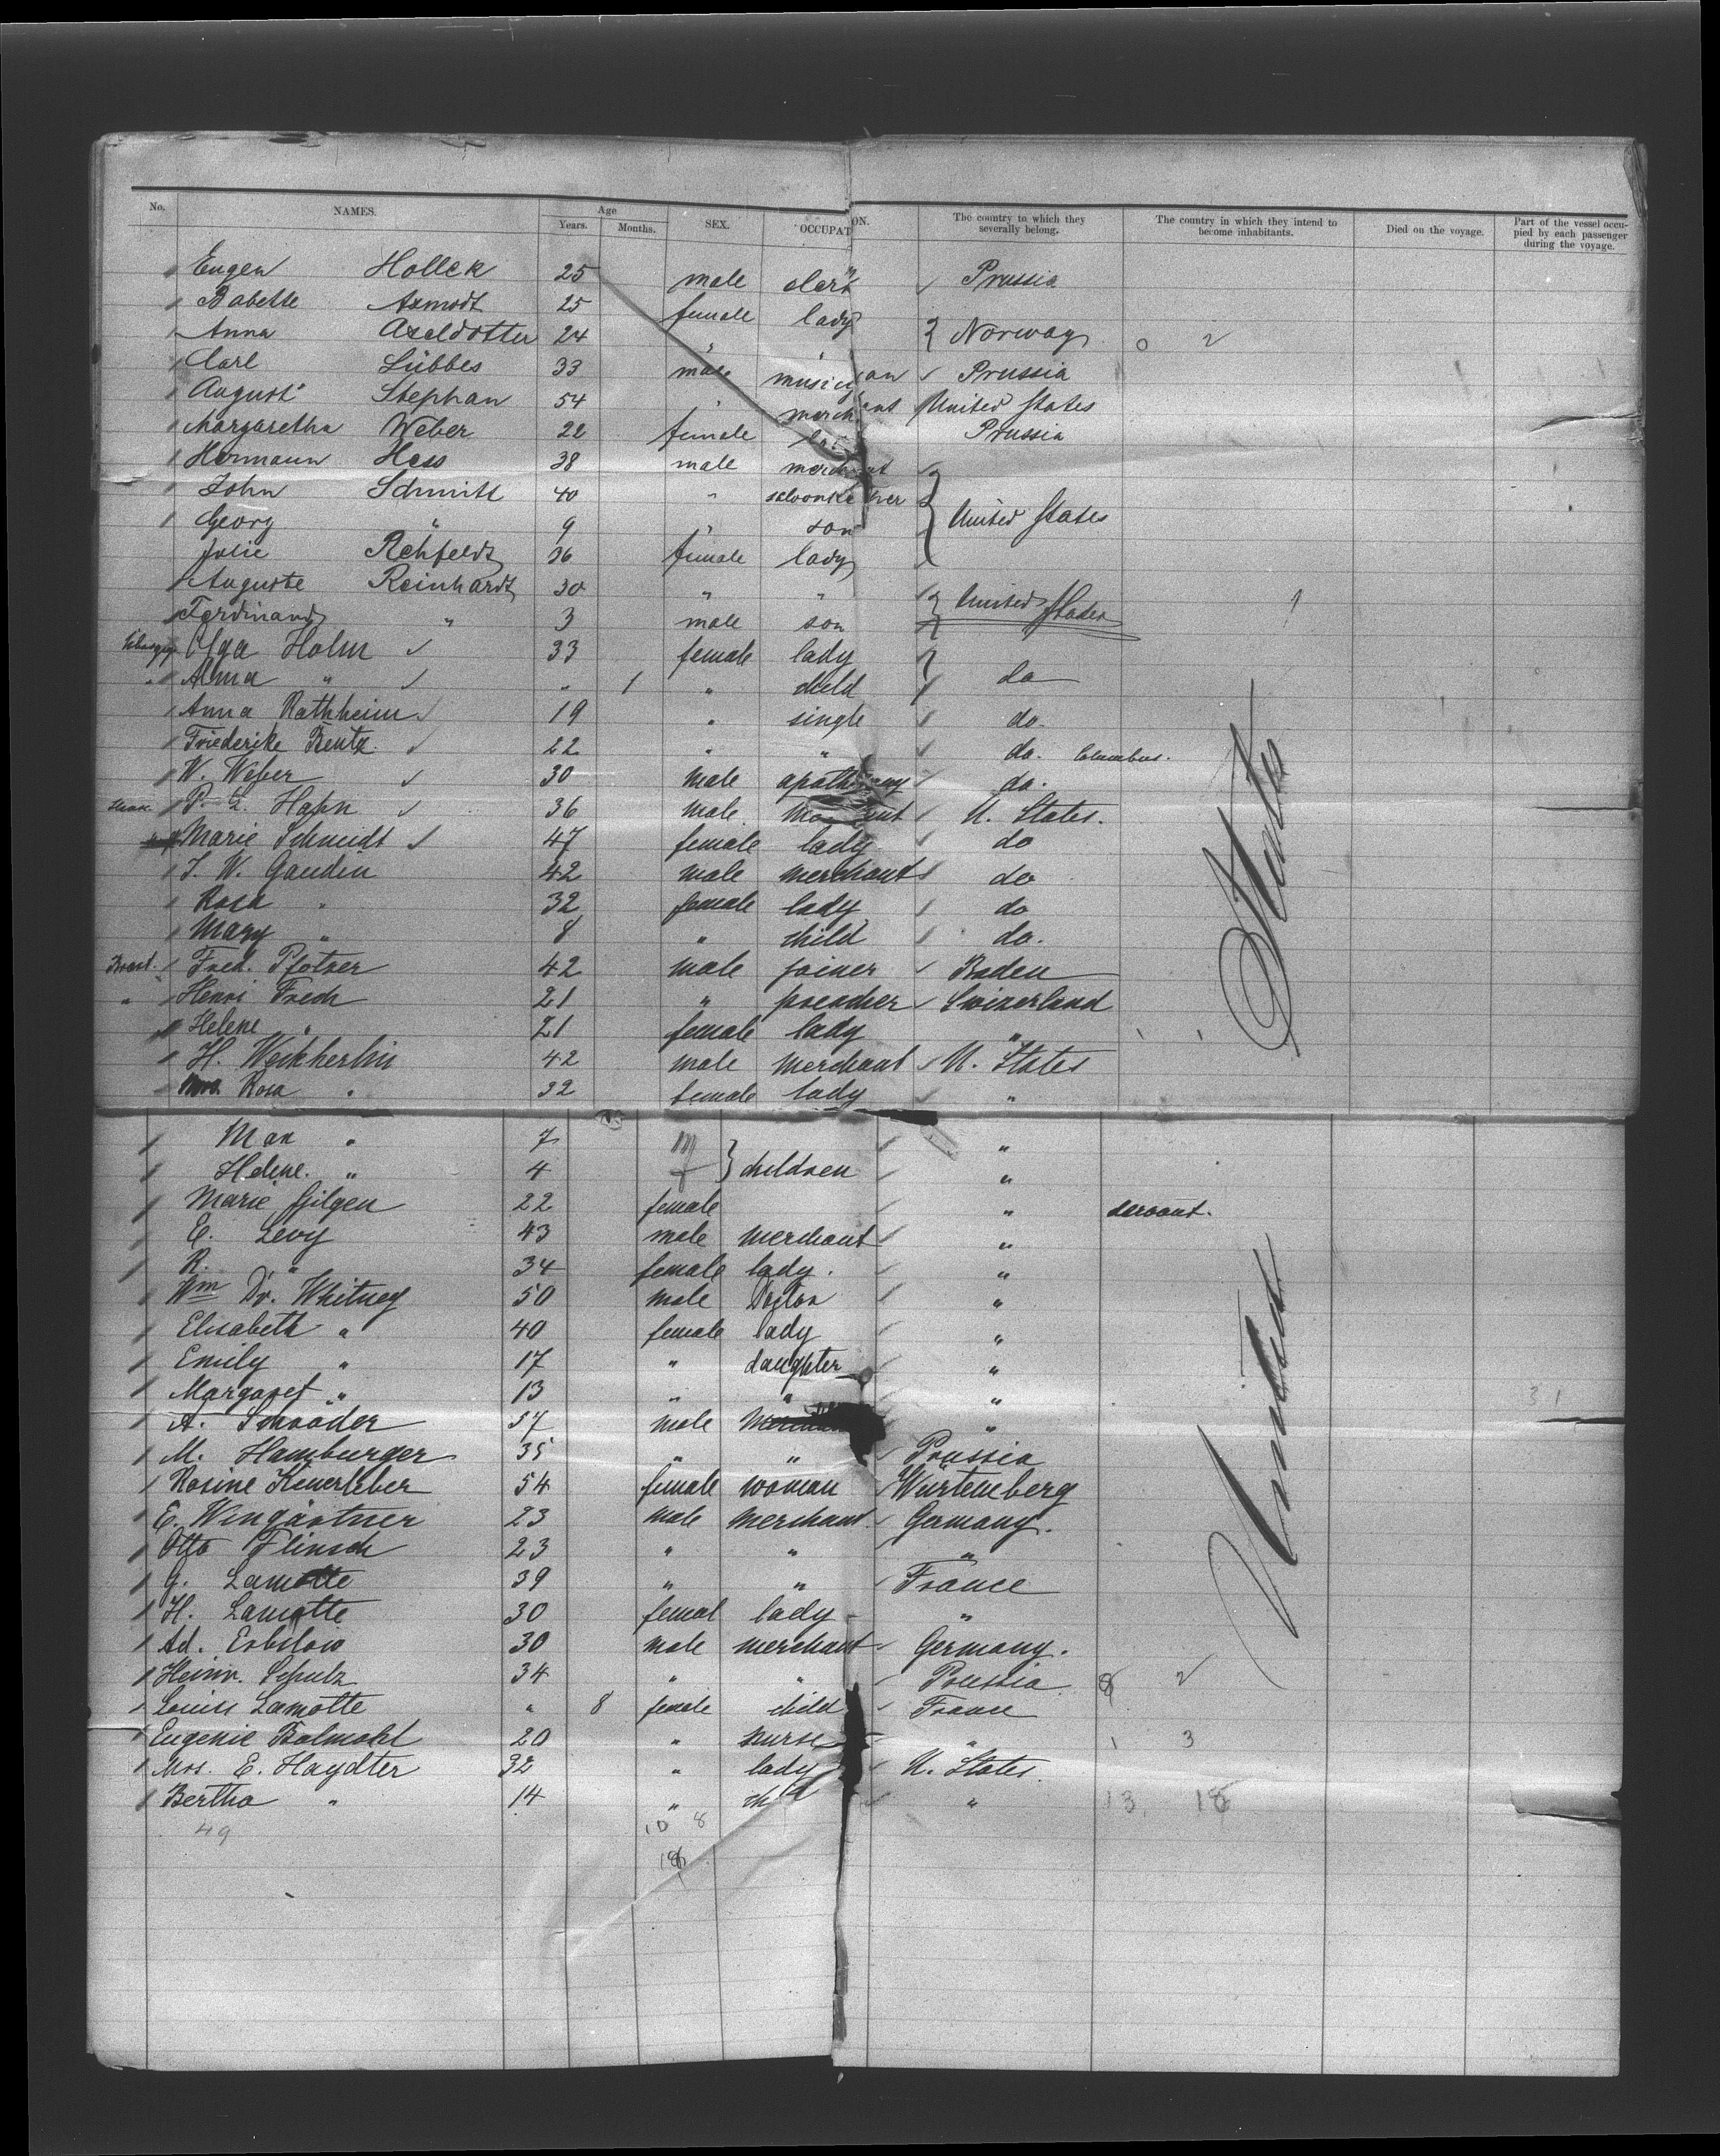 No. NAMES. Age Years. Months. SEX. OCCUPATION. The country to which they severally belong. The country in which they intend to become inhabitants. Died on the voyage. Part of the vessel occupied by each passenger during the voyage.
Eugen Holleck 25 male clerk Prussia
Babette Axmodt 25 female lady
Anna Axeldotter 24 " " } Norway 0 2
Carl Lübbes 33 male musician Prussia
August Stephan 54 " merchant United States
Margaretha Weber 22 female Prussia
Hermann Hess 38 male merchant
John Schmitt 40 " saloonkeeper
Georg " 9 " son } United States
Julie Rehfeldt 36 female lady
Auguste Reinhardt 30 " " } United States
Ferdinand " 3 male son
Olga Holm ✓ 33 female lady
Alma " ✓ " 1 " child } do
Anna Rathheim ✓ 19 " single do.
Friederike Bentz ✓ 22 " " do. Columbus.
W. Weber ✓ 30 male apothecary do.
Hahn ✓ 36 male U. States.
Marie Schmidt ✓ 47 female lady do
J. W. Gaudin 42 male merchant do
Rosa " 32 female lady do
Mary " 8 " child do.
Fred. Pfotzer 42 male joiner Baden
" Henri Frech 21 " preacher Swizerland
Helene " 21 female lady "
H. Weckherlin 42 male merchant U. States
Rosa " 32 female lady "
Max " 7 m
Helene. " 4 f } children "
Marie Gilgen 22 female " servant.
E. Levy 43 male merchant "
R. " 34 female lady. "
Wm Dr. Whitney 50 male Doctor "
Elisabeth " 40 female lady "
Emily " 17 " daughter "
Margaret " 13 " " "
A. Schröder 57 male "
M. Hamburger 35 " " Prussia
Rosine Keuerleber 54 female woman Würtemberg
E. Wengärtner 23 male merchant Germany.
Otto Flinsch 23 " " "
G. Lamotte 39 " " France
H. Lamotte 30 femal lady "
Ad. Erbslow 30 male merchant Germany.
Heinr. Schulz 34 " " Prussia 8 2
Louise Lamotte " 8 female child France
Eugenie Balmohl 20 " nurse " 1 3
Mrs. E. Haydter 32 " lady U. States.
Bertha " 14 " child " 13. 18
49 10 8
18
31
United States